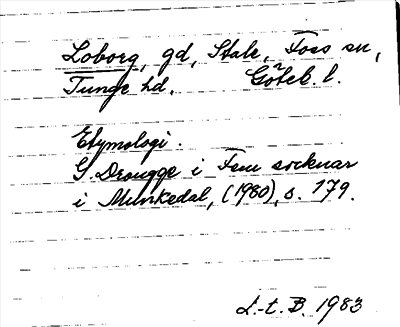 Loborg, gd, Stale, Foss sn,
Tunge hd. Göteb. l.
Etymologi.
G. Drougge i Fem socknar
i Munkedal, (1980), s. 179.
L.-t. B. 1983